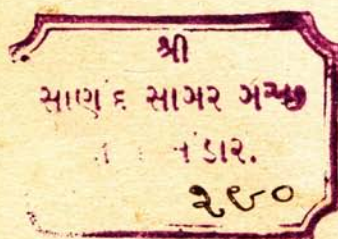 શ્રી
સાણંદ સાગર ગચ્છ
ભંડાર.
૨૯૦